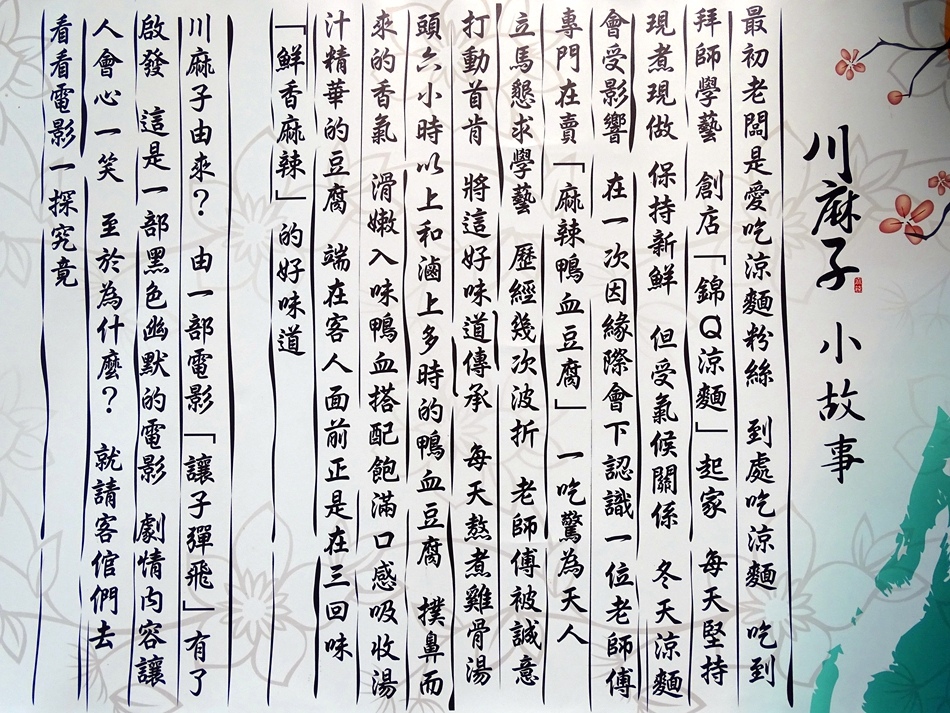 川麻子 小故事
最初老闆是愛吃涼麵粉絲 到處吃涼麵 吃到
拜師學藝 創店「錦Q涼麵」起家 每天堅持
現煮現做 保持新鮮 但受氣候關係 冬天涼麵
會受影響 在一次因緣際會下認識一位老師傅
專門在賣「麻辣鴨血豆腐」一吃驚為天人
立馬懇求學藝 歷經幾次波折 老師傅被誠意
打動首肯 將這好味道傳承 每天熬煮雞骨湯
頭六小時以上和滷上多時的鴨血豆腐 撲鼻而
來的香氣 滑嫩入味鴨血搭配飽滿口感吸收湯
汁精華的豆腐 端在客人面前正是在三回味
「鮮香麻辣」的好味道
川麻子由來？ 由一部電影「讓子彈飛」有了
啟發 這是一部黑色幽默的電影 劇情內容讓
人會心一笑 至於為什麼？ 就請客倌們去
看看電影一探究竟